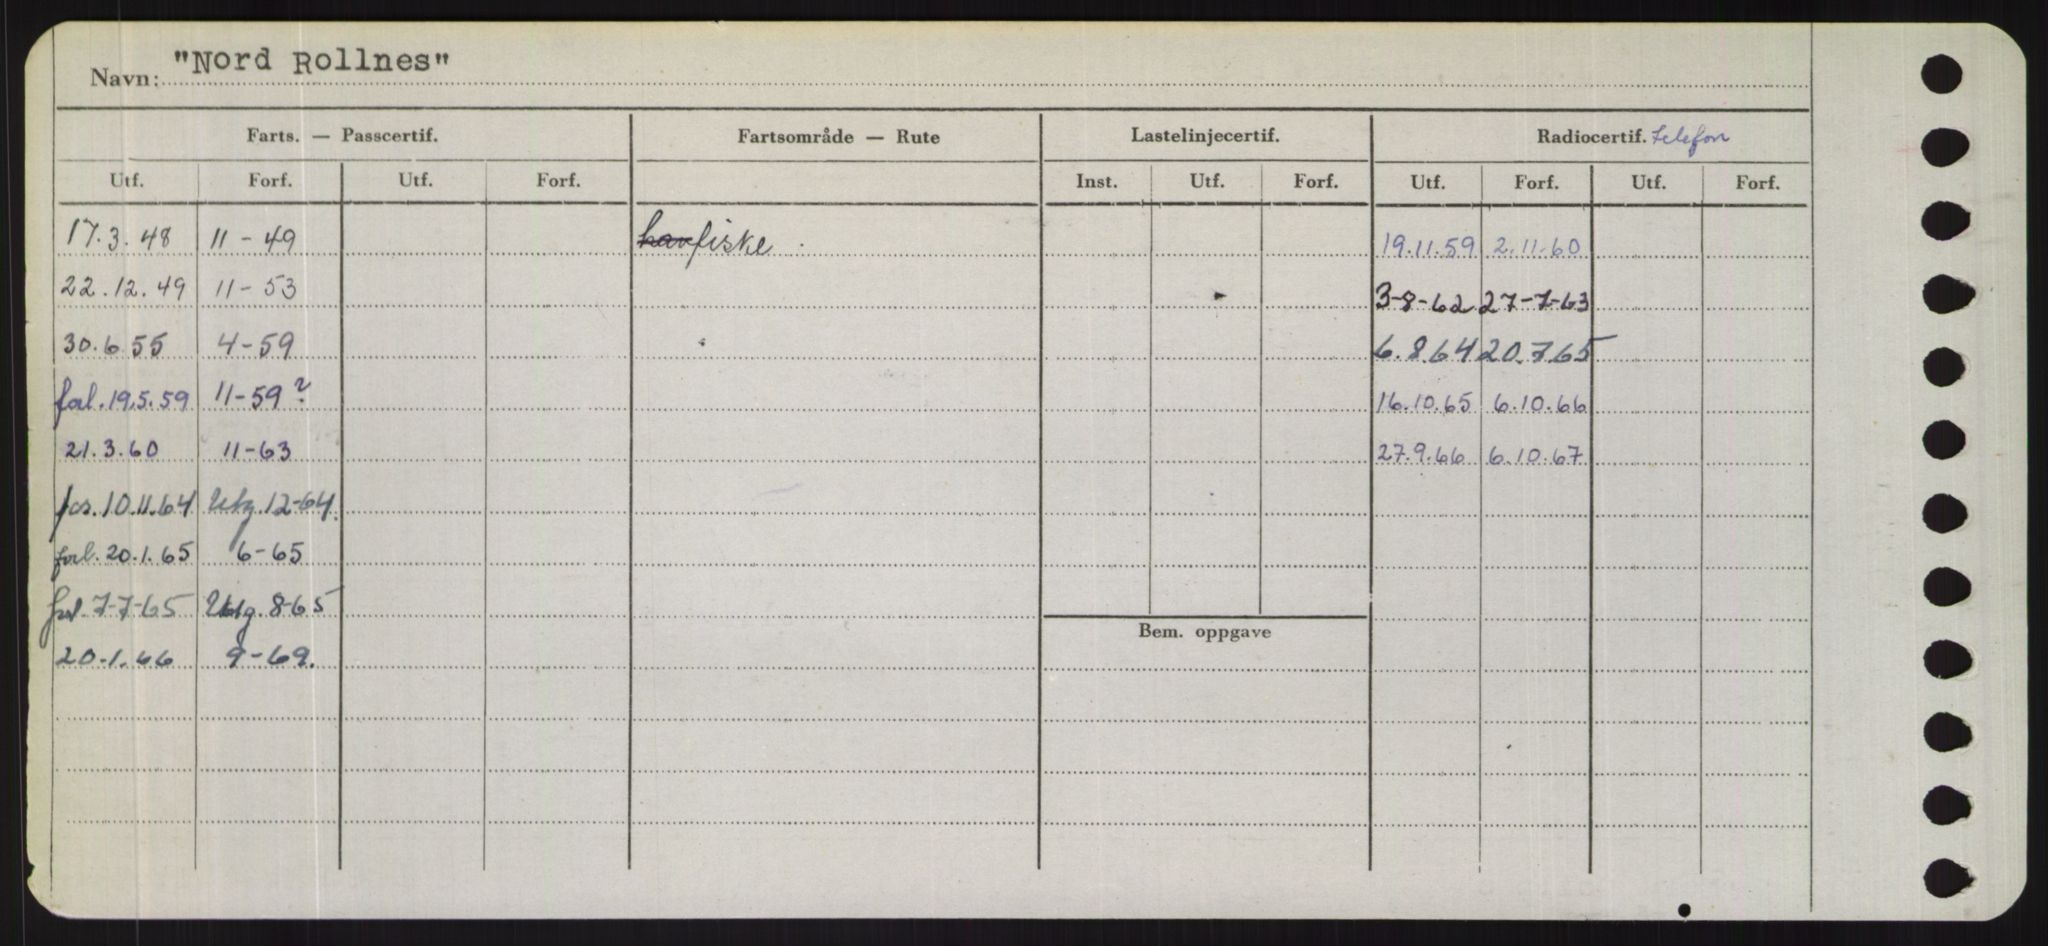 Navn: "Nord Rollnes"
Farts. — Passcertif. Fartsområde — Rute Lastelinjecertif. Radiocertif. telefon
Utf. Forf. Utf. Forf. Inst. Utf. Forf. Utf. Forf. Utf. Forf.
17.3.48 11-49 havfiske. 19.11.59 2.11.60
22.12.49 11-53 3-8-62 27-7-63
30.6.55 4-59 6.8.64 20.7.65
forl. 19.5.59 11-59? 16.10.65 6.10.66
21.3.60 11-63 27.9.66 6.10.67
10.11.64 Utg. 12-64.
forl. 20.1.65 6-65
forl. 7-7-65 Utg. 8-65
Bem. oppgave
20.1.66 9-69.